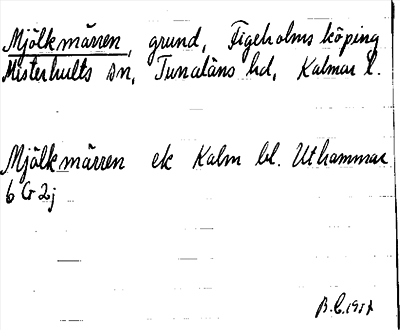 Mjölkmärren, grund, Figeholms köping
Misterhults sn, Tunaläns hd, Kalmar l.
Mjölkmärren ek Kalm bl. Uthammar
6 G 2j
B.C. 1957